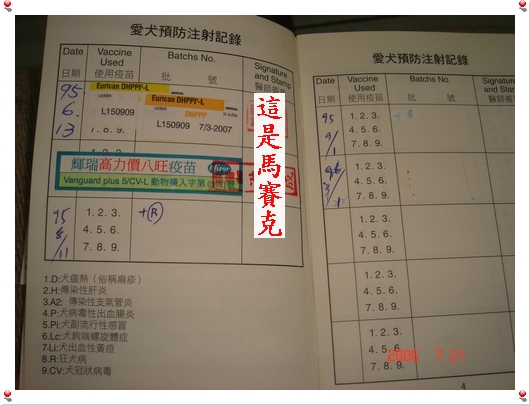 愛犬預防注射記錄
Date
日期
Vaccine Used
使用疫苗
Batchs No.
批 號
Signature and Stamp
95
6.
13
Eurican DHPPI²-L
L150909
Eurican DHPPI²-L
DHPPI²
L150909 7/3-2007
7. 8. 9.
輝瑞高力價八旺疫苗 Pfizer
Vanguard plus 5/CV-L 動物藥入字第
95
8/11
1. 2. 3.
4. 5. 6.
7. 8. 9.
+Ⓡ
1.D:犬瘟熱(俗稱麻疹)
2.H:傳染性肝炎
3.A2: 傳染性支氣管炎
4.P:犬病毒性出血腸炎
5.Pi:犬副流行性感冒
6.Lc:犬鉤端螺旋體症
7.Li:犬出血性黃疸
8.R:狂犬病
9.CV:犬冠狀病毒
這是馬賽克
愛犬預防注射記錄
Date
日期
Vaccine Used
使用疫苗
Batchs No.
批 號
95
9/1
1. 2. 3.
4. 5. 6.
7. 8. 9.
1. 2. 3.
4. 5. 6.
7. 8. 9.
1. 2. 3.
4. 5. 6.
7. 8. 9.
1. 2. 3.
4. 5. 6.
7. 8. 9.
1. 2. 3.
4. 5. 6.
7. 8. 9.
4